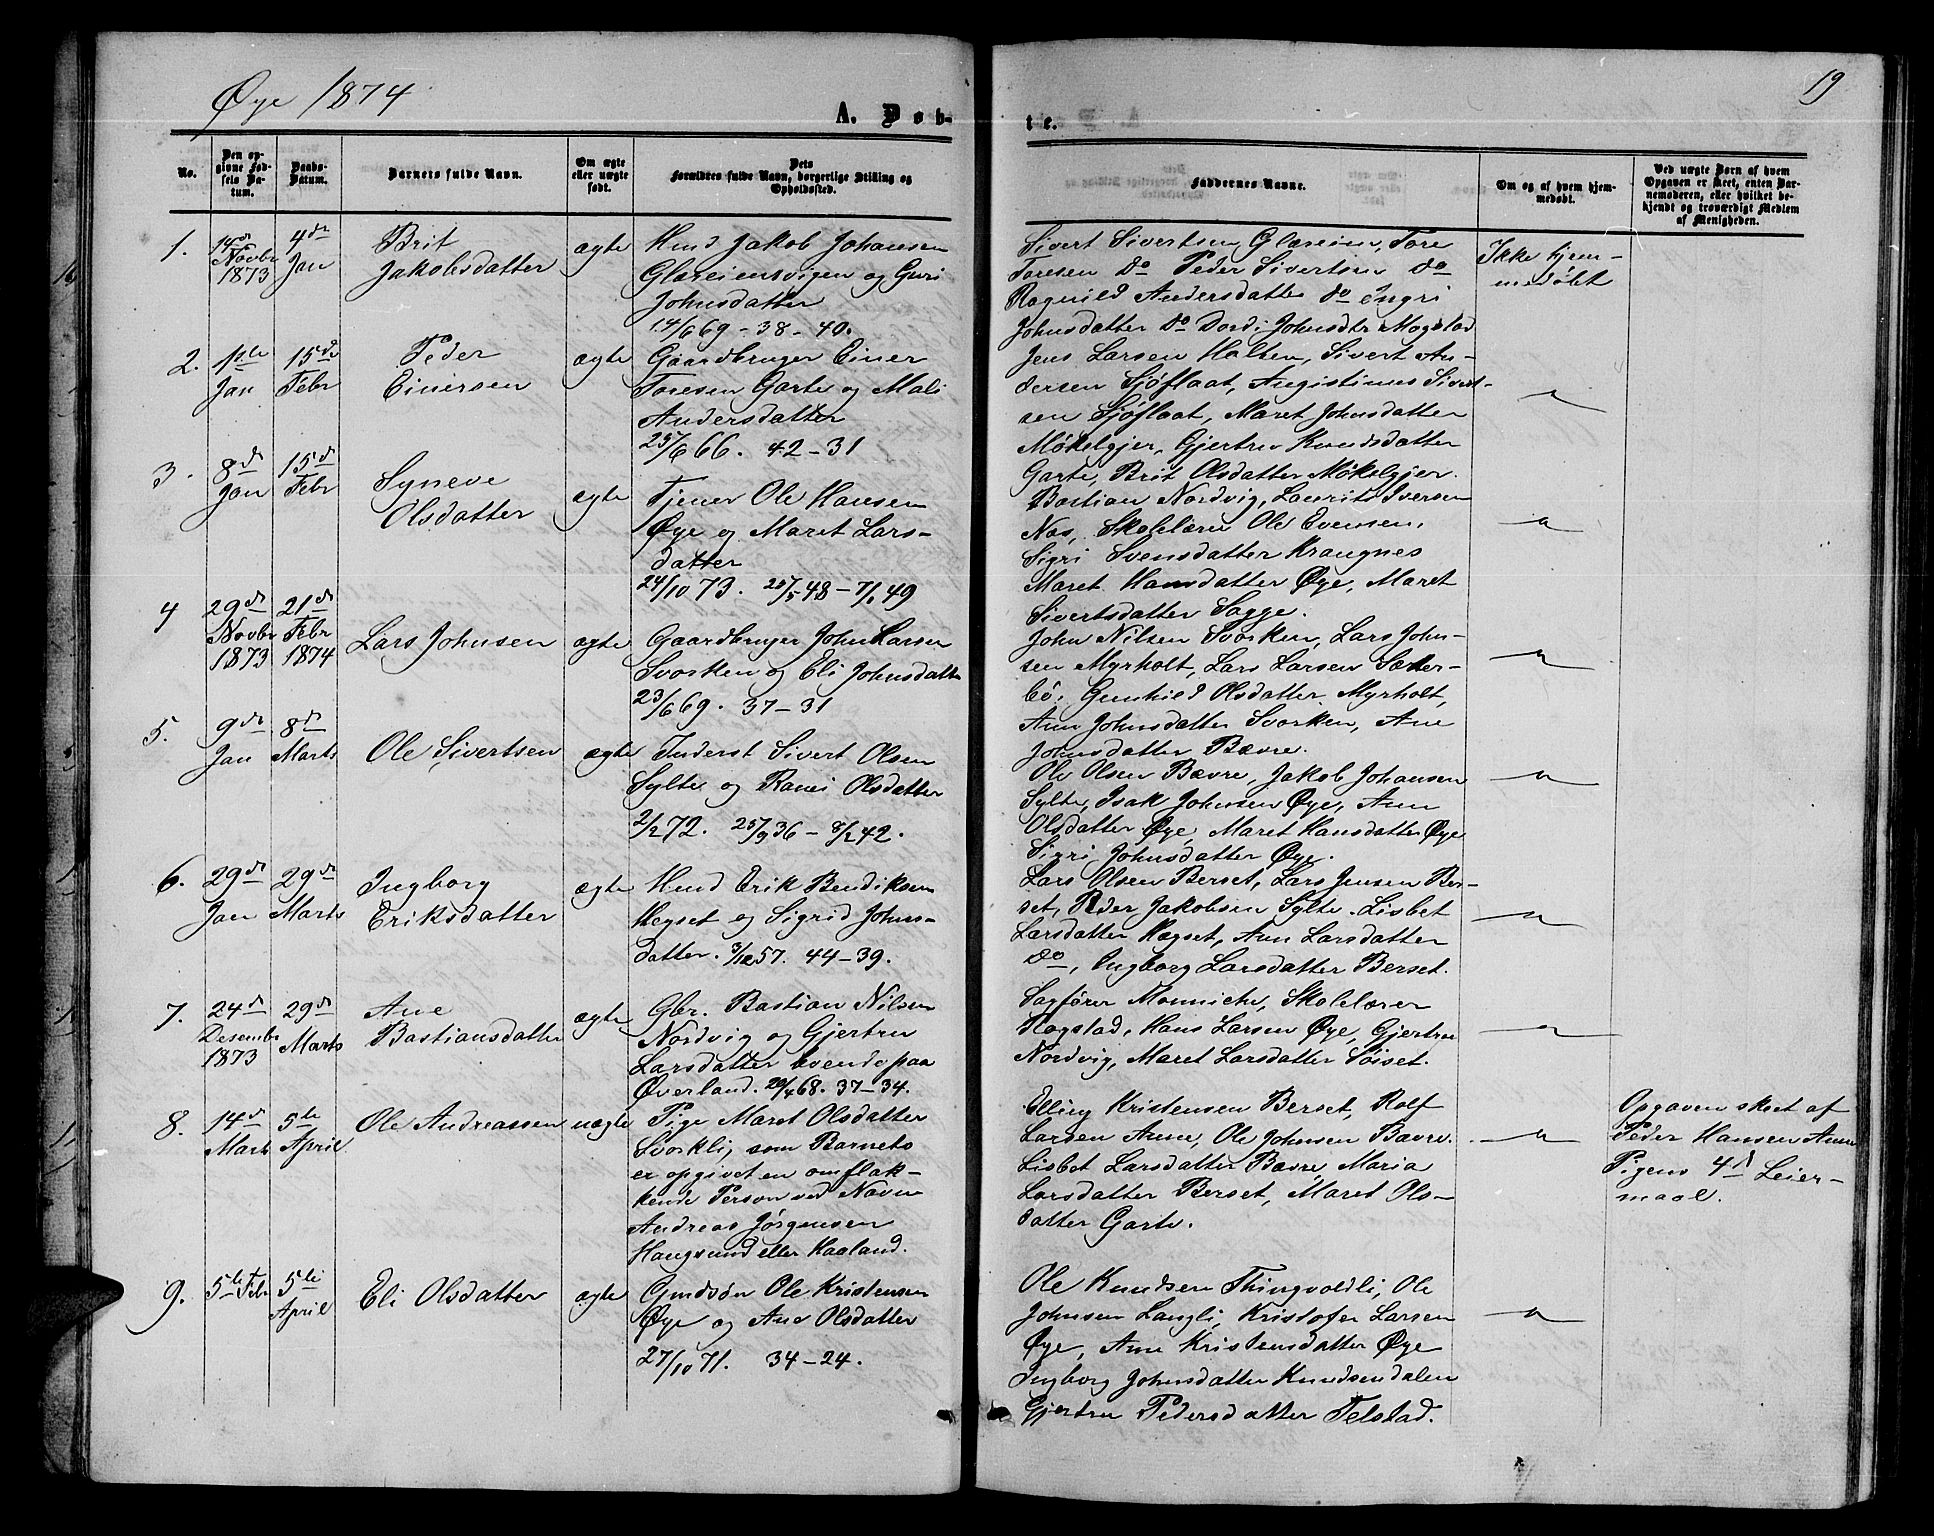 Øye 1874
19
A. Døb-
te.
No.
Den op-
givne Fød-
sels Da-
tum.
Daabs-
Datum.
Barnets fulde Navn.
Om ægte
eller uægte
født.
Dets
Forældres fulde Navn, borgerlige Stilling og
Opholdssted.
Faddernes Navne.
Om og af hvem hjem-
medøbt.
Ved uægte Børn af hvem
Opgaven er skeet, enten Bar-
nemoderen, eller hvilket be-
kjendt og troværdigt Medlem
af Menigheden.
1.
14de
Novbr
1873
4de
Jan
Brit
Jakobsdatter
ægte
Hmd Jakob Johansen
Glæreiensvigen og Guri
Johnsdatter
14/6 69 - 38 - 40.
Sivert Sivertsen Glæreien, Tore
Toresen Do Peder Sivertsen do
Ragnild Andersdatter do Ingri
Johnsdatter Do Dordi Johnsdtr Mogstad
Ikke hjem-
medøbt
2.
1ste
Jan
15de
Febr
Peder
Einersen
ægte
Gaardbruger Einer
Toresen Garte og Mali
Andersdatter
25/6 66. 42 - 31
Jens Larsen Holten, Sivert An-
dersen Sjøflaat, Augistinus Sivert-
sen Sjøflaat, Maret Johnsdatter
Møkelgjer, Gjertru Knudsdatter
Garte, Brit Olsdatter Møkelgjer.
3.
8de
Jan
15de
Febr
Syneve
Olsdatter
ægte
Tjener Ole Hansen
Øye og Maret Lars-
datter
24/10 73. 25/5 48 - 7/1 49
Bastian Nordvig, Laurits Iversen
Nos, Skolelærer Ole Evensen,
Sigri Svensdatter Krangnes
Maret Hansdatter Øye, Maret
Sivertsdatter Sagge.
4
29de
Novbr
1873
21de
Febr
1874
Lars Johnsen
ægte
Gaardbruger John Larsen
Svorken og Eli Johnsdatter
23/6 69. 37 - 31
John Nilsen Svorken, Lars John-
sen Myrholt, Lars Larsen Sæter-
bø, Gunhild Olsdatter Myrholt,
Ann Johnsdatter Svorken, Ane
Johnsdatter Bævre.
5.
9de
Jan
8de
Marts
Ole Sivertsen
ægte
Inderst Sivert Olsen
Sylte og Ranei Olsdatter
2/2 72. 25/9 36 - 8/2 42.
Ole Olsen Bævre, Jakob Johansen
Sylte, Isak Johnsen Øye, Ann
Olsdatter Øye, Maret Hansdatter Øye
Sigri Johnsdatter Øye.
6.
29de
Jan
29de
Marts
Ingborg
Eriksdatter
ægte
Hmd Erik Bendiksen
Hegset og Sigrid Johns-
datter. 3/12 57. 44 - 39.
Lars Olsen Berset, Lars Jensen Ber-
set, Peder Jakobsen Sylte. Lisbet
Larsdatter Hegset, Ann Larsdatter
Do, Ingborg Larsdatter Berset.
7.
24de
Desembr
1873
29de
Marts
Ane
Bastiansdatter
ægte
Gbr. Bastian Nilsen
Nordvig og Gjertru
Larsdatter boende paa
Øverland. 29/4 68. 37 - 34.
Sagfører Monniche, Skolelærer
Rogstad, Hans Larsen Øye, Gjertru
Nordvig, Maret Larsdatter Søiset.
8.
14de
Marts
5te
April
Ole Andreassen
uægte
Pige Maret Olsdatter
Svorkli, som Barnets
er opgivet en omflak-
kende Person ved Navn
Andreas Jørgensen
Haugsund eller Kaaland.
Elling Kristensen Berset, Rolf
Larsen Aune, Ole Johnsen Bævre.
Lisbet Larsdatter Bævre, Maria
Larsdatter Berset, Maret Ols-
datter Garte.
Opgaven skeet af
Peder Hansen Aune
Pigens 4de Leier-
maal.
9.
5te Febr
5te
April
Eli Olsdatter
ægte
Gmdsøn Ole Kristensen
Øye og Ane Olsdatter
27/10 71. 34 - 24.
Ole Knudsen Thingvoldli, Ole
Johnsen Langli, Kristofer Larsen
Øye, Ann Kristensdatter Øye
Ingborg Johnsdatter Knudsendalen
Gjertru Pedersdatter Telstad.